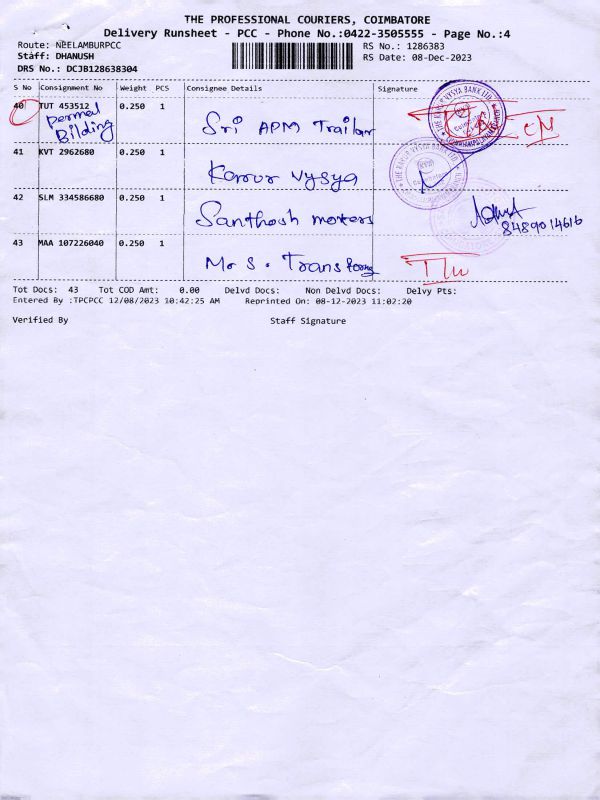 THE PROFESSIONAL COURIERS, COIMBATORE
Delivery Runsheet - PCC - Phone No.:0422-3505555 - Page No.:4
Route: NEELAMBURPCC RS No.: 1286383
Staff: DHANUSH RS Date: 08-Dec-2023
DRS No.: DCJB128638304
S No Consignment No Weight PCS Consignee Details Signature
40 TUT 453512 0.250 1 Sri APM Trailar
Permal
Bilding
41 KVT 2962680 0.250 1 Karur Vysya
42 SLM 334586680 0.250 1 Santhosh moters
8489014616
43 MAA 107226040 0.250 1 Mr S. Transforms
Tot Docs: 43 Tot COD Amt: 0.00 Delvd Docs: Non Delvd Docs: Delvy Pts:
Entered By :TPCPCC 12/08/2023 10:42:25 AM Reprinted On: 08-12-2023 11:02:20
Verified By Staff Signature